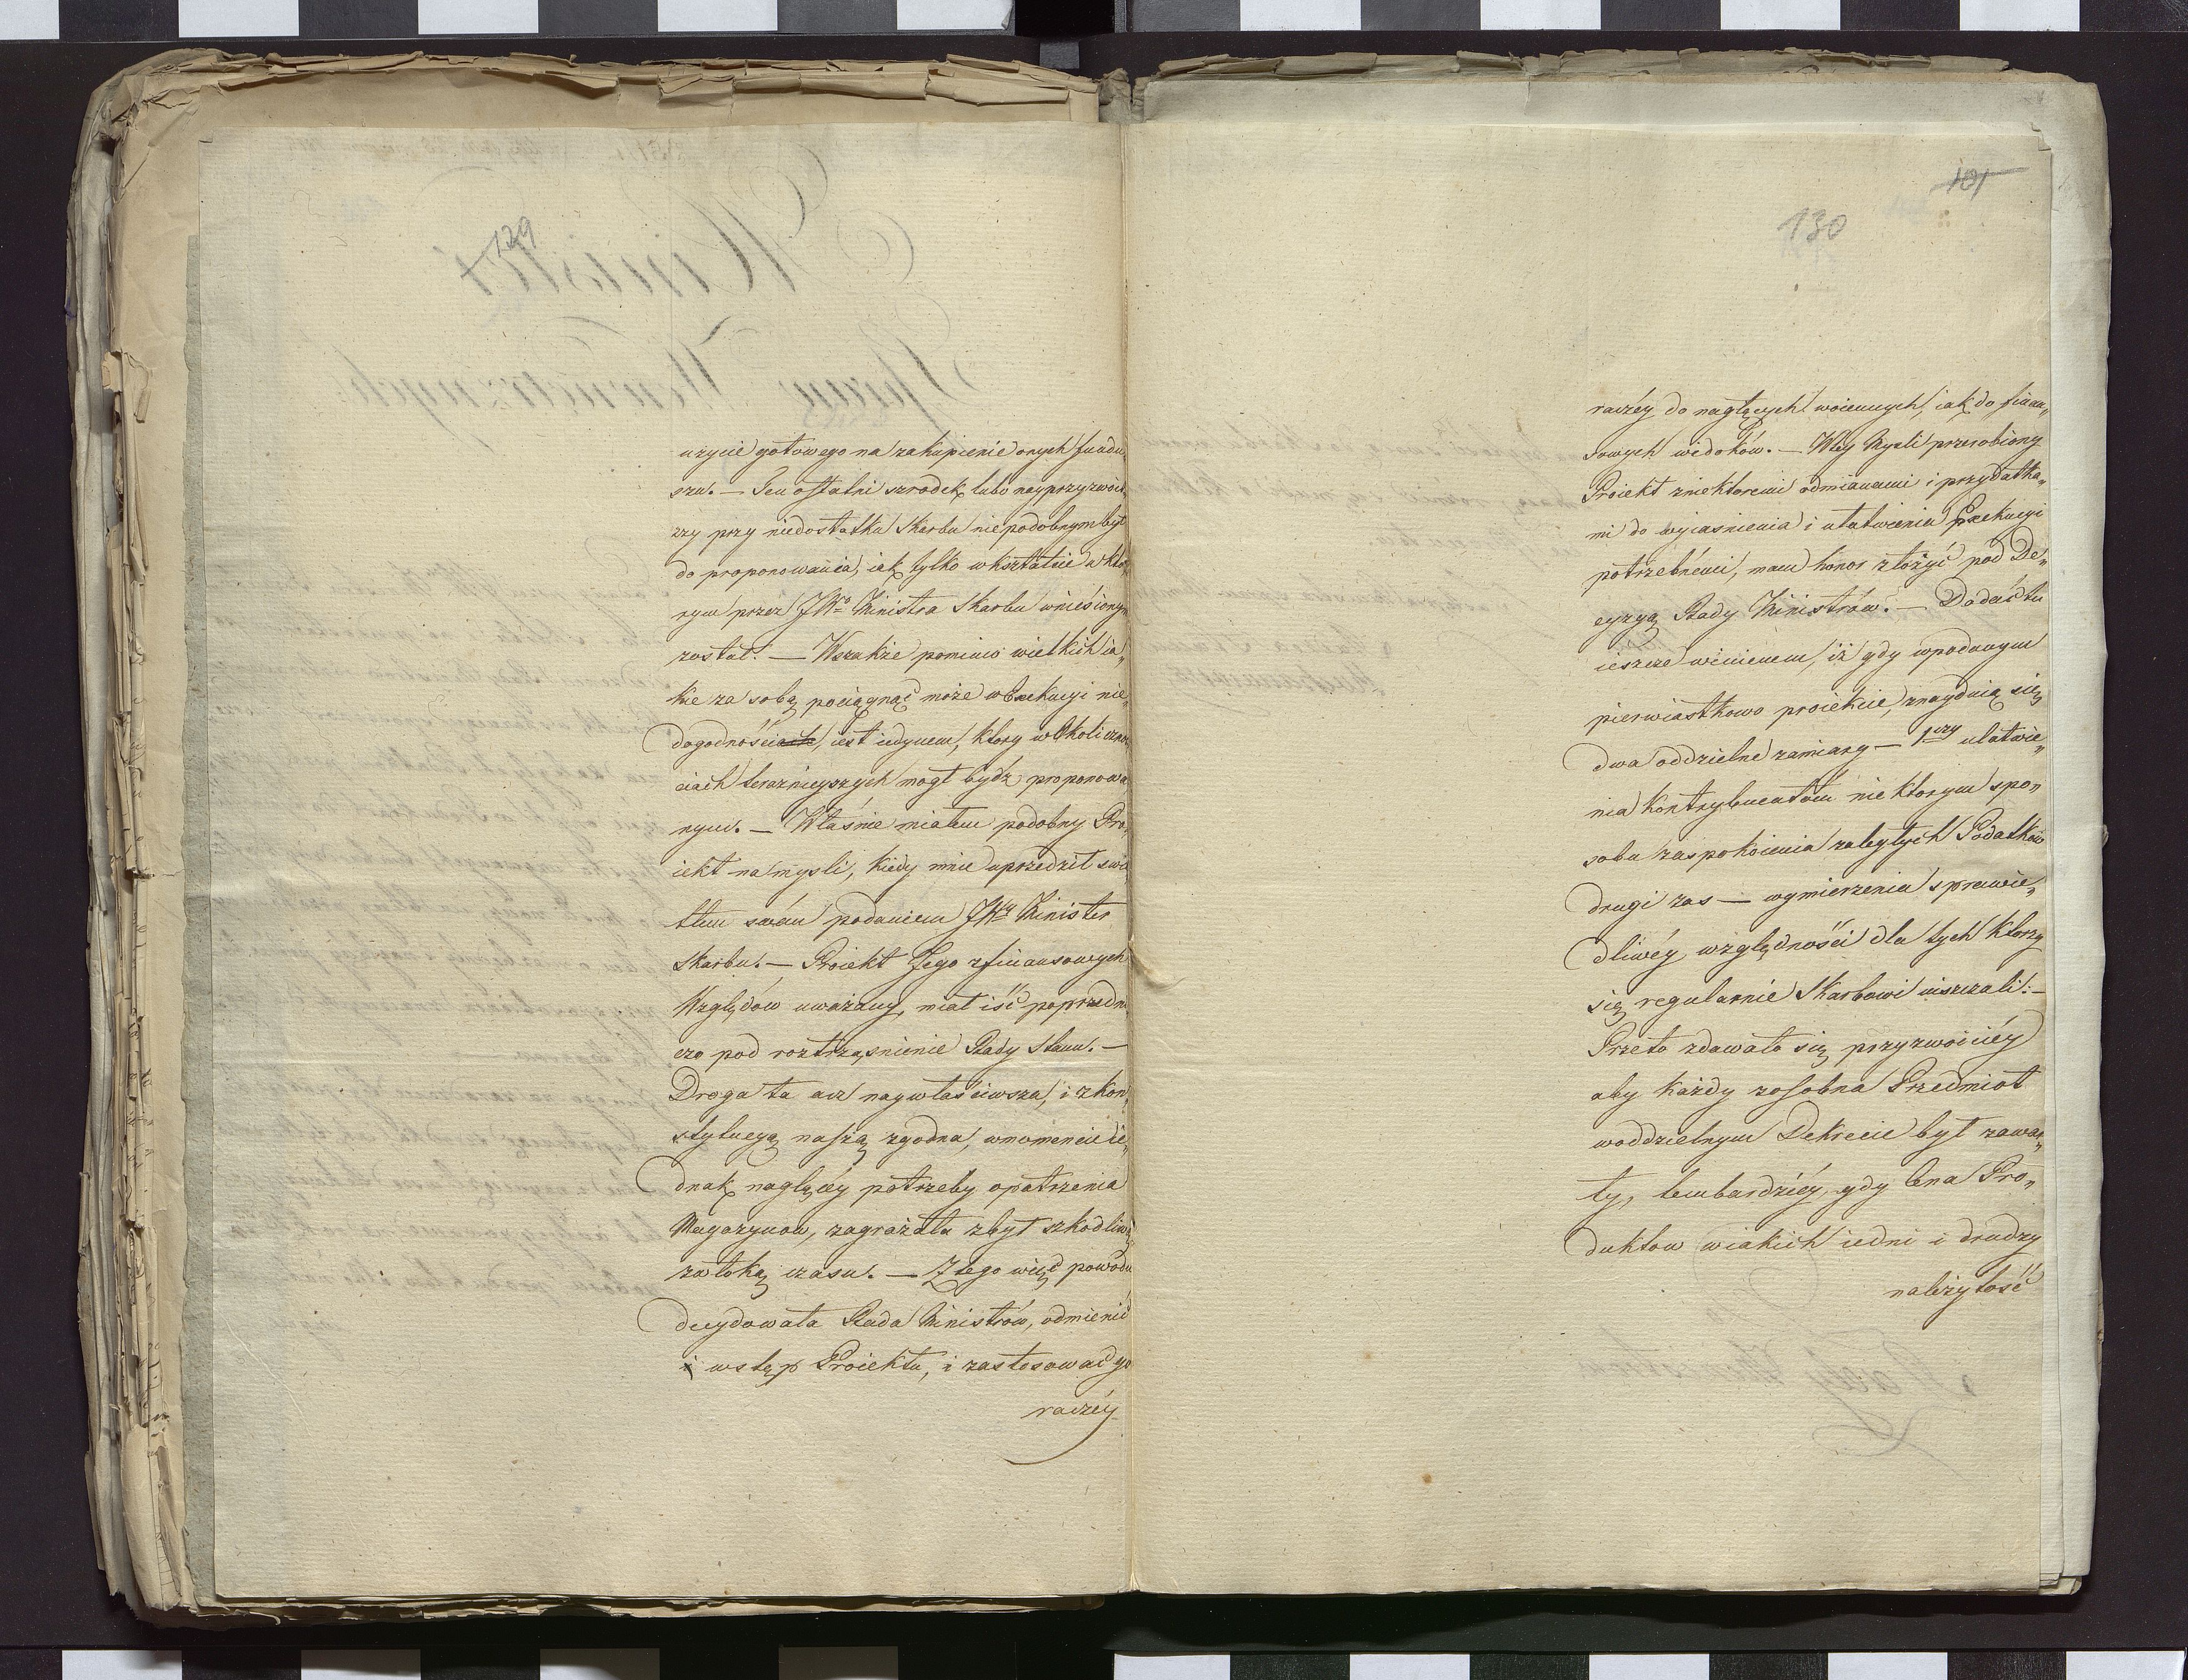 129
użycie gotowego na zakupienie onych fundu
szu. — Ten ostatni szrodek lubo nayprzyzwoit
szy przy niedostatku Skarbu niepodobnym był
do proponowania, iak tylko wkształcie wktó„
rym przez JWo Ministra Skarbu wniesionym
został. — Wszakże pomimo wielkich ia„
kie za sobą pociągnąć może wExekucyi nie„
dogodności, iest iedynem, ktory wOkoliczno
ściach teraźnieyszych mogł bydź proponowa
nym. — Właśnie miałem podobny Pro„
iekt na mysli, kiedy mnie uprzedził świa
tłem swém podaniem JWny Minister
Skarbu. — Proiekt Jego zfinansowych
Względów uważany, miał iść poprzedni
czo pod roztrząśnienie Rady Stanu. —
Droga ta acz naywłaściwsza, i zkon„
stytucyą naszą zgodna, wmomencie ie„
dnak naglącéy potrzeby opatrzenia
Magazynow, zagrażała zbyt szkodliwą
zwłoką czasu. — Ztego więc powodu
decydowała Rada Ministrów, odmienić
i wstęp Proiektu, i zastosować go
raczéy
101
130
raczéy do naglących woiennych, iak do finan„
sowych widoków. — Wtey Mysli przerobiony
Proiekt zniektoremi odmianami i przydatka„
mi do wyiasnienia i ułatwienia Exekucyi
potrzebnemi, mam honor złożyć pod De„
cyzyą Rady Ministrów. — Dodać tu
ieszcze winienem, iż gdy wpodanym
pierwiastkowo proiekcie, znayduią się
dwa oddzielne zamiary — 1szy ułatwie„
nia Kontrybuentom niektorym spo„
sobu zaspokoienia zaległych Podatków
drugi zas — wymierzenia sprawie„
dliwéy względności dla tych ktorzy
się regularnie Skarbowi uiszczali: —
Przeto zdawało się przyzwoiciéy
aby każdy zosobna Przedmiot
woddzielnym Dekrecie był zawar„
ty, tembardziéy, gdy Cena Pro„
duktow wiakich iedni i drudzy
należytość